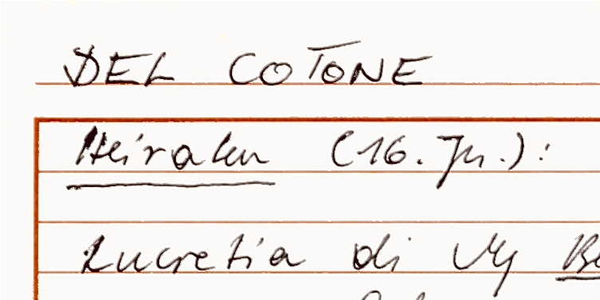 DEL COTONE
Heiraten (16. Jh.):
Lucretia di